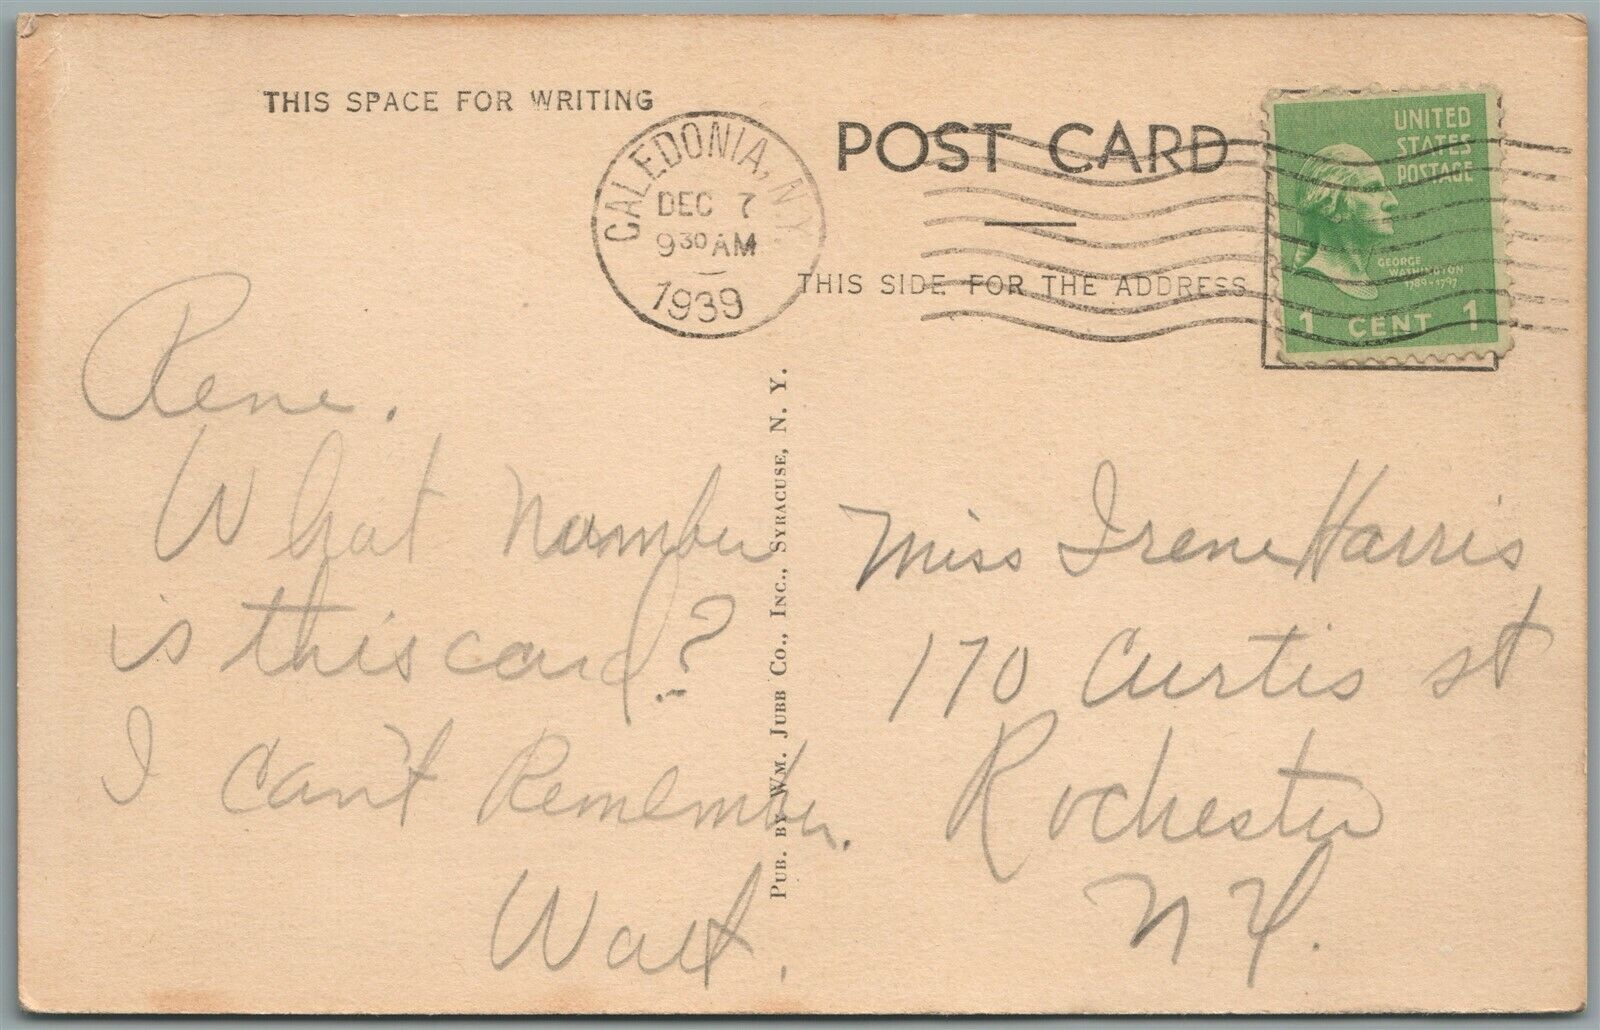 THIS SPACE FOR WRITING
CALEDONIA, N.Y.
DEC 7
9 30 AM
1939
POST CARD
THIS SIDE FOR THE ADDRESS
UNITED
STATES
POSTAGE
GEORGE
WASHINGTON
1789-1797
1 CENT 1
Rene.
What number
is this card?
I can't Remember.
Walt.
PUB. BY WM. JUBB CO., INC., SYRACUSE, N. Y.
Miss Irene Harris
170 Curtis st
Rochester
N Y.